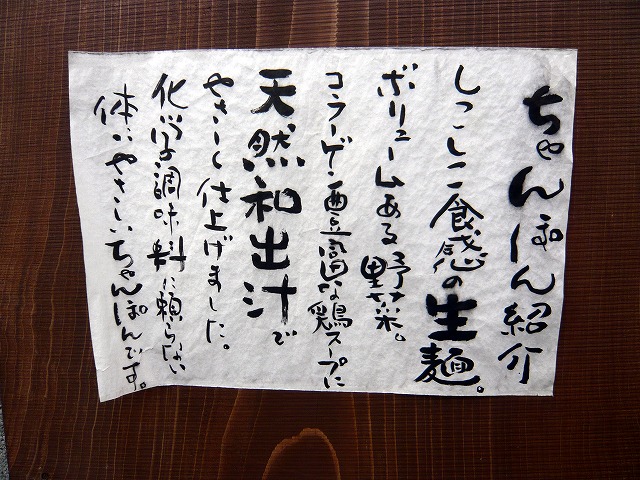 ちゃんぽん紹介
しこしこ食感の生麺。
ボリュームある野菜。
コラーゲン豊潤な鶏スープに
天然和出汁で
やさしく仕上げました。
化学調味料に頼らない
体にやさしいちゃんぽんです。